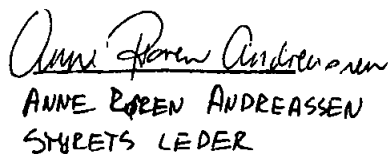 Anne Røren Andreassen
ANNE RØREN ANDREASSEN
STYRETS LEDER